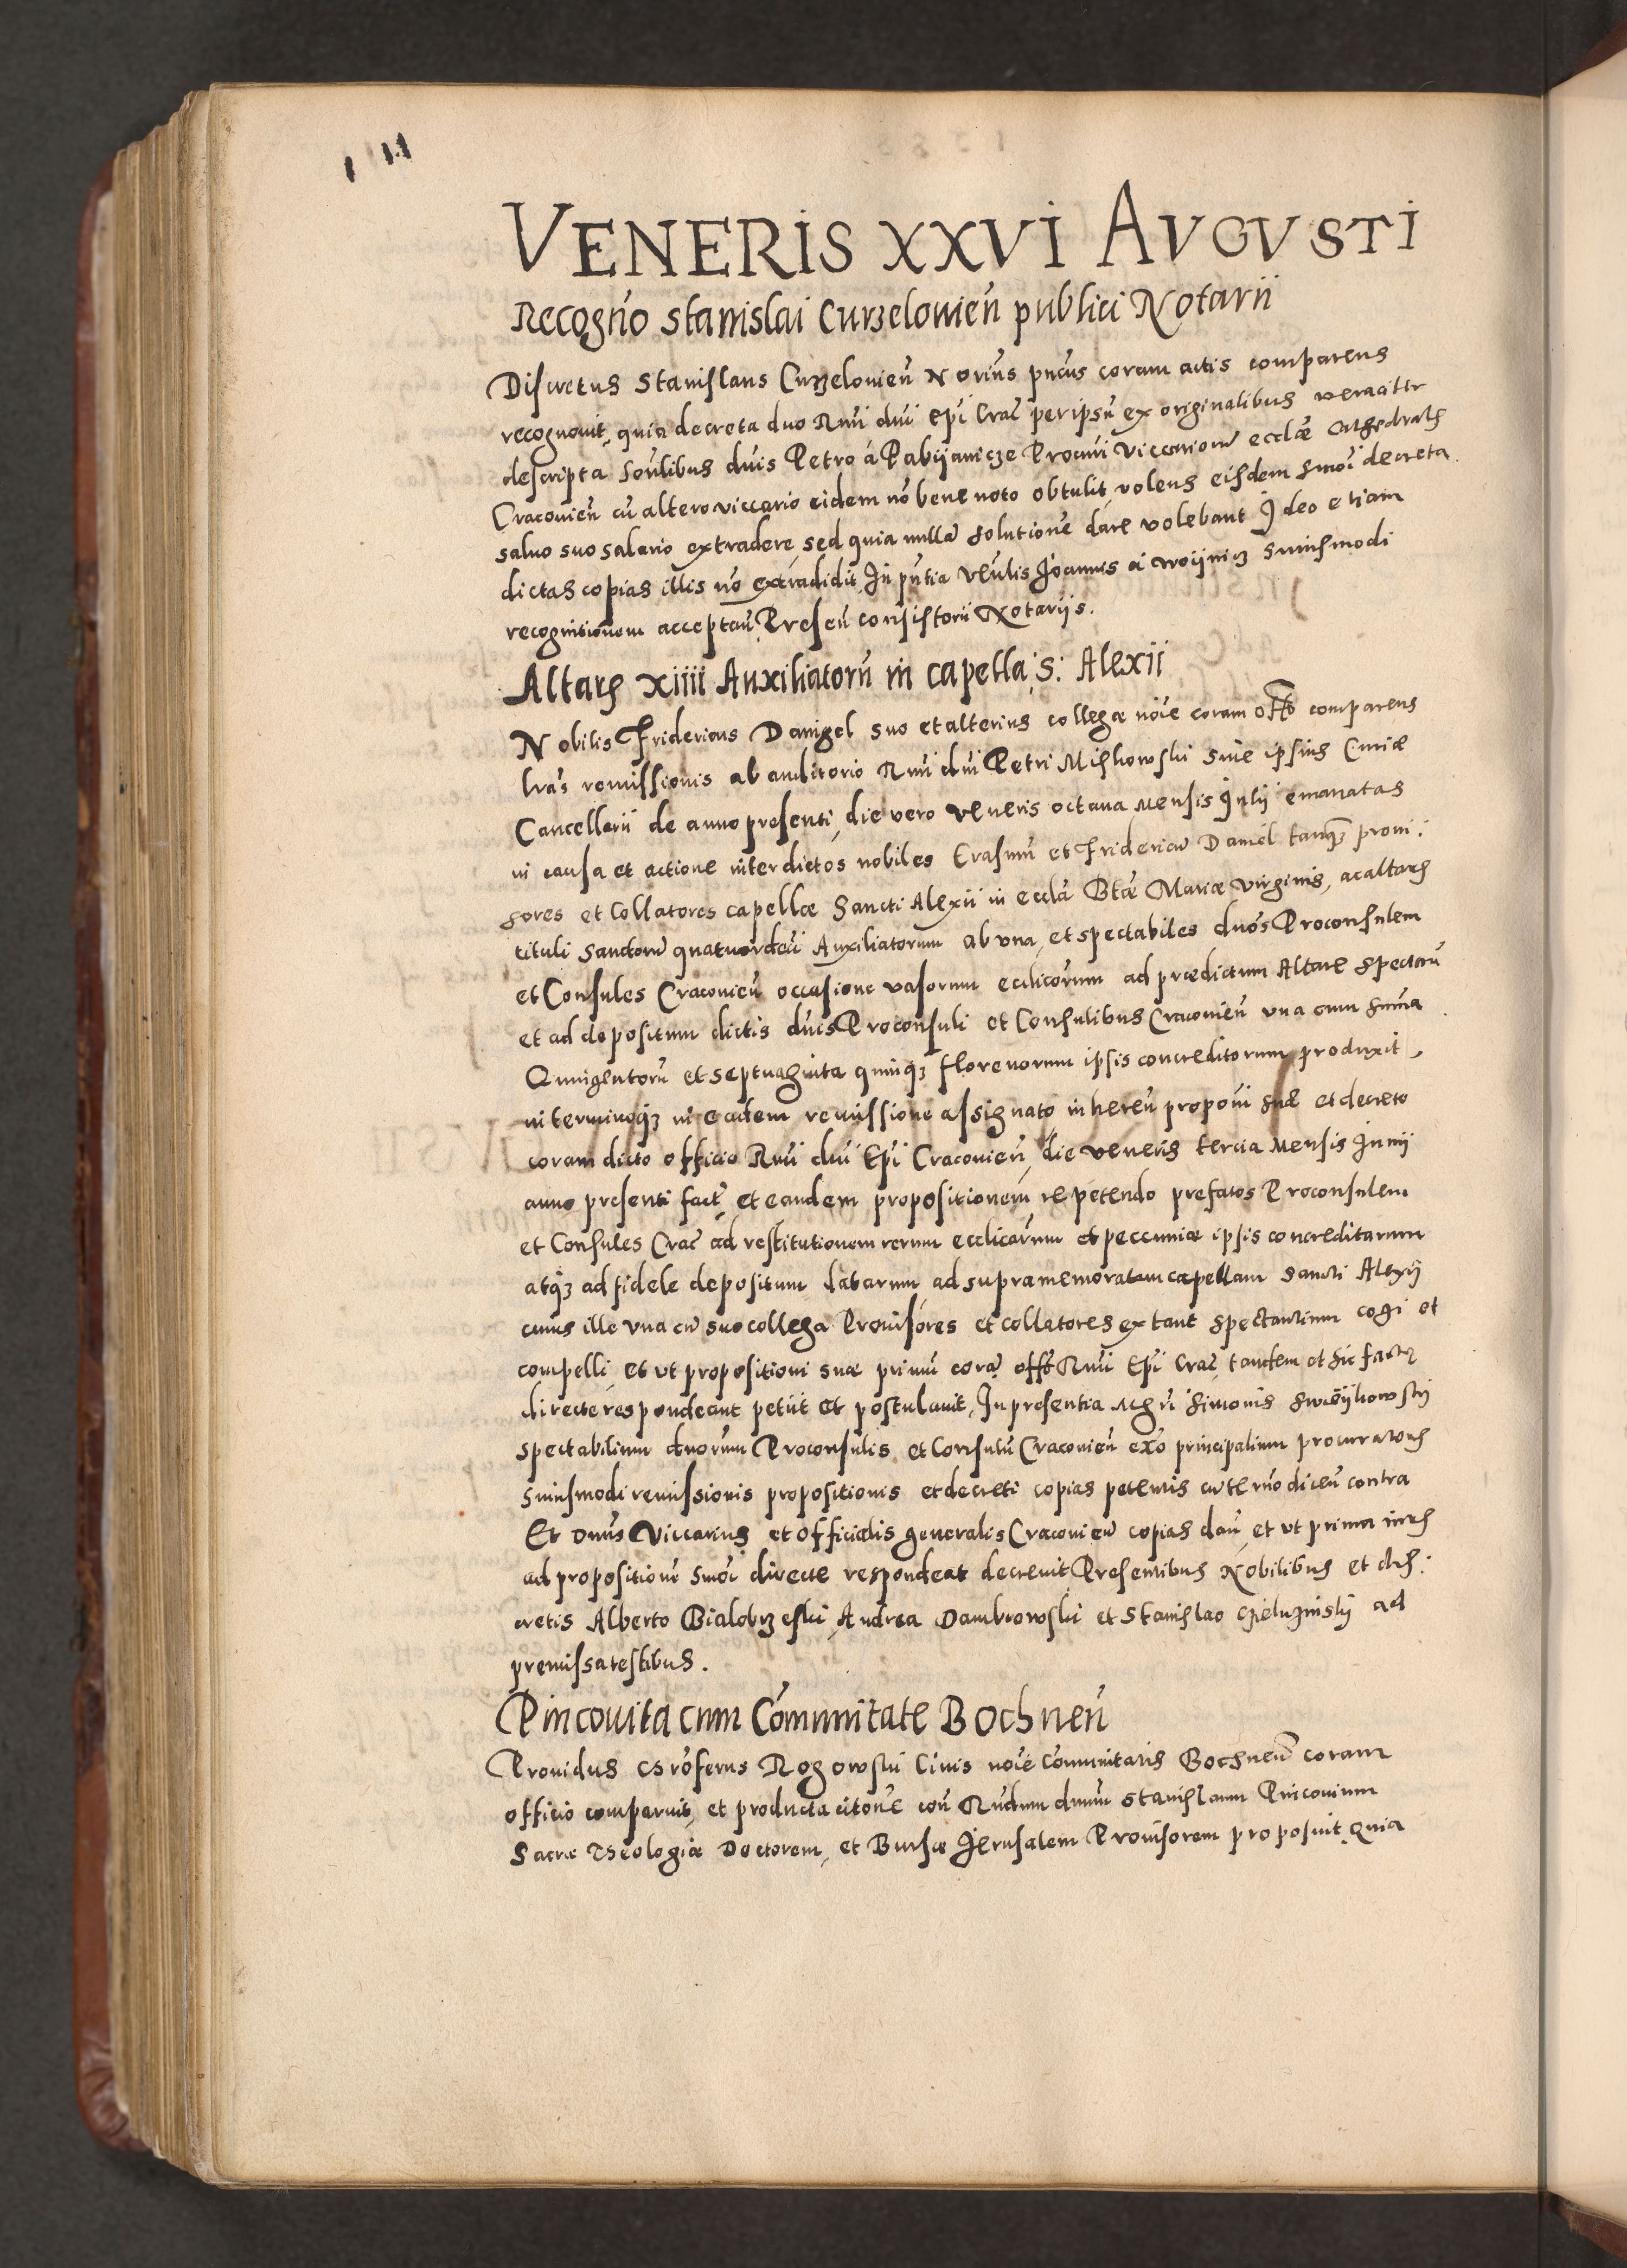 VENERIS XXVI AVGVSTI
Recogno Stanislai Curzelouien publici Notarii
Discretus Stanislaus Curzelouien Norius pncus coram actis comparens
recognouit, quia decreta duo Rmi dni Epi Crac per ipsu ex originalibus veraciter
descripta honlibus dnis Petro á Pabijanicze Procuri Viccariorum ecclæ Cathedralis
Cracouien cu altero viccario eidem no bene noto obtulit, volens eisdem hmoi decreta
saluo suo salario extradere, sed quia nulla solutione dare volebant Ideo etiam
dictas copias illis no extradidit, In pntia venlis Joannis á Woijnicz huiusmodi
recognitionem acceptan Presen consistorii Notariis.
Altaris xiiii Auxiliatoru in capella S: Alexii
Nobilis Fridericus Danigel suo et alterius collegæ noie coram offo comparens
lras remissionis ab auditorio Rmi dni Petri Mishowski siue ipsius Curiæ
Cancellarii de anno presenti, die vero Veneris octaua Mensis Julij emanatas
in causa et actione inter dictos nobiles Erasmu et Fridericu Daniel tanqz proui:
sores et Collatores capellæ Sancti Alexii in eccla Btæ Mariæ Virginis, ac altaris
tituli Sanctoru quatuordeci Auxiliatorum ab vna, et spectabiles dnos Proconsulem
et Consules Cracouien occasione vasorum ecclicorum ad prædictum Altare spectan
et ad depositum dictis dnis Proconsuli et Consulibus Cracouien vna cum suma
Quingentoru et septuaginta quinqz florenorum ipsis concreditorum produxit,
in terminoqz in eadem remissione assignato inheren proponi suæ et decreto
coram dicto officio Rmi dni Epi Cracouien, die veneris tercia Mensis Junij
anno presenti fact, et eandem propositionem repetendo prefatos Proconsulem
et Consules Crac ad restitutionem rerum ecclicarum et peccuniæ ipsis concreditarum
atqz ad fidele depositum datarum ad supramemoratam capellam Sancti Alexij
cuius ille vna cu suo collega Prouisores et collatores extant spectantium cogi et
compelli, et vt propositioni suæ primu cora offo Rmi Epi Crac tandem et hic factæ
directe respondeant petiit et postulauit, In presentia Mgri Simonis
spectabilium dnorum Proconsulis et Consulu Cracouien exo principalium procuratoris
huiusmodi remissionis propositionis et decreti copias petentis cu termo dicen contra
Et Dnus Viccarius et Officialis generalis Cracouien copias dan, et vt prima iuris
ad propositione hmoi directe respondeat decreuit Presentibus Nobilibus et dis:
cretis Alberto Bialobrzeski, Andrea Dambrowski et Stanislao ad
premissa testibus.
Pinconita cum Comunitate Bochnen
Prouidus Cshroferus Rogowski Ciuis noie Comunitatis Bochnen coram
officio comparuit, et producta citone con Rndum dnum Stanislaum Pinconium
Sacræ Theologiæ Doctorem, et Bursæ Jerusalem Prouisorem proposuit, quia